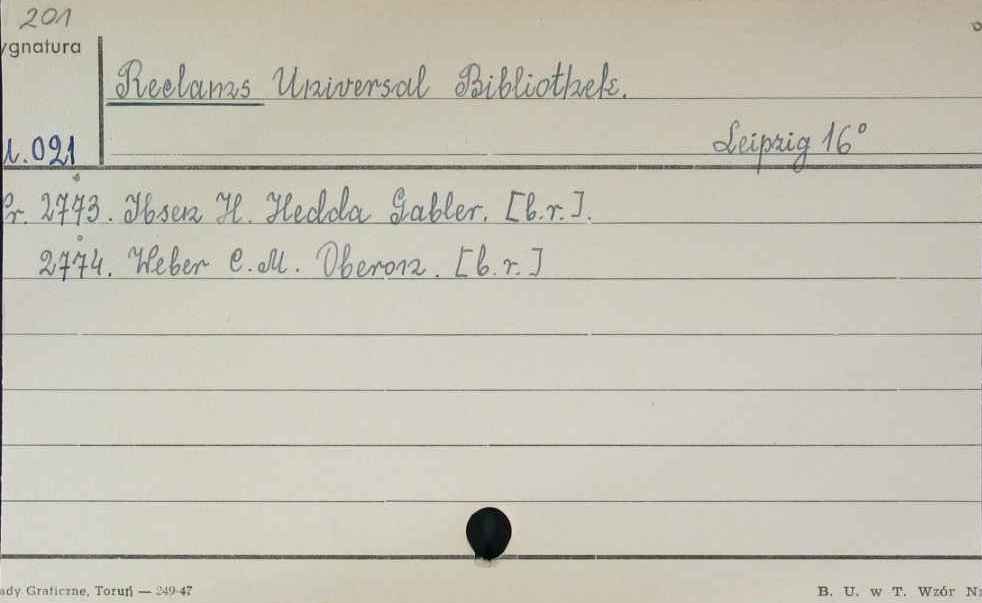 201
ygnatura
Reclams Universal Bibliothek.
Leipzig 16°
.021
2773. Ibsen H. Hedda Gabler. [b.r.].
2774. Weber C.M. Oberon. [b.r.]
ady Graficzne, Toruń — 249-47
B. U. w T. Wzór Nr